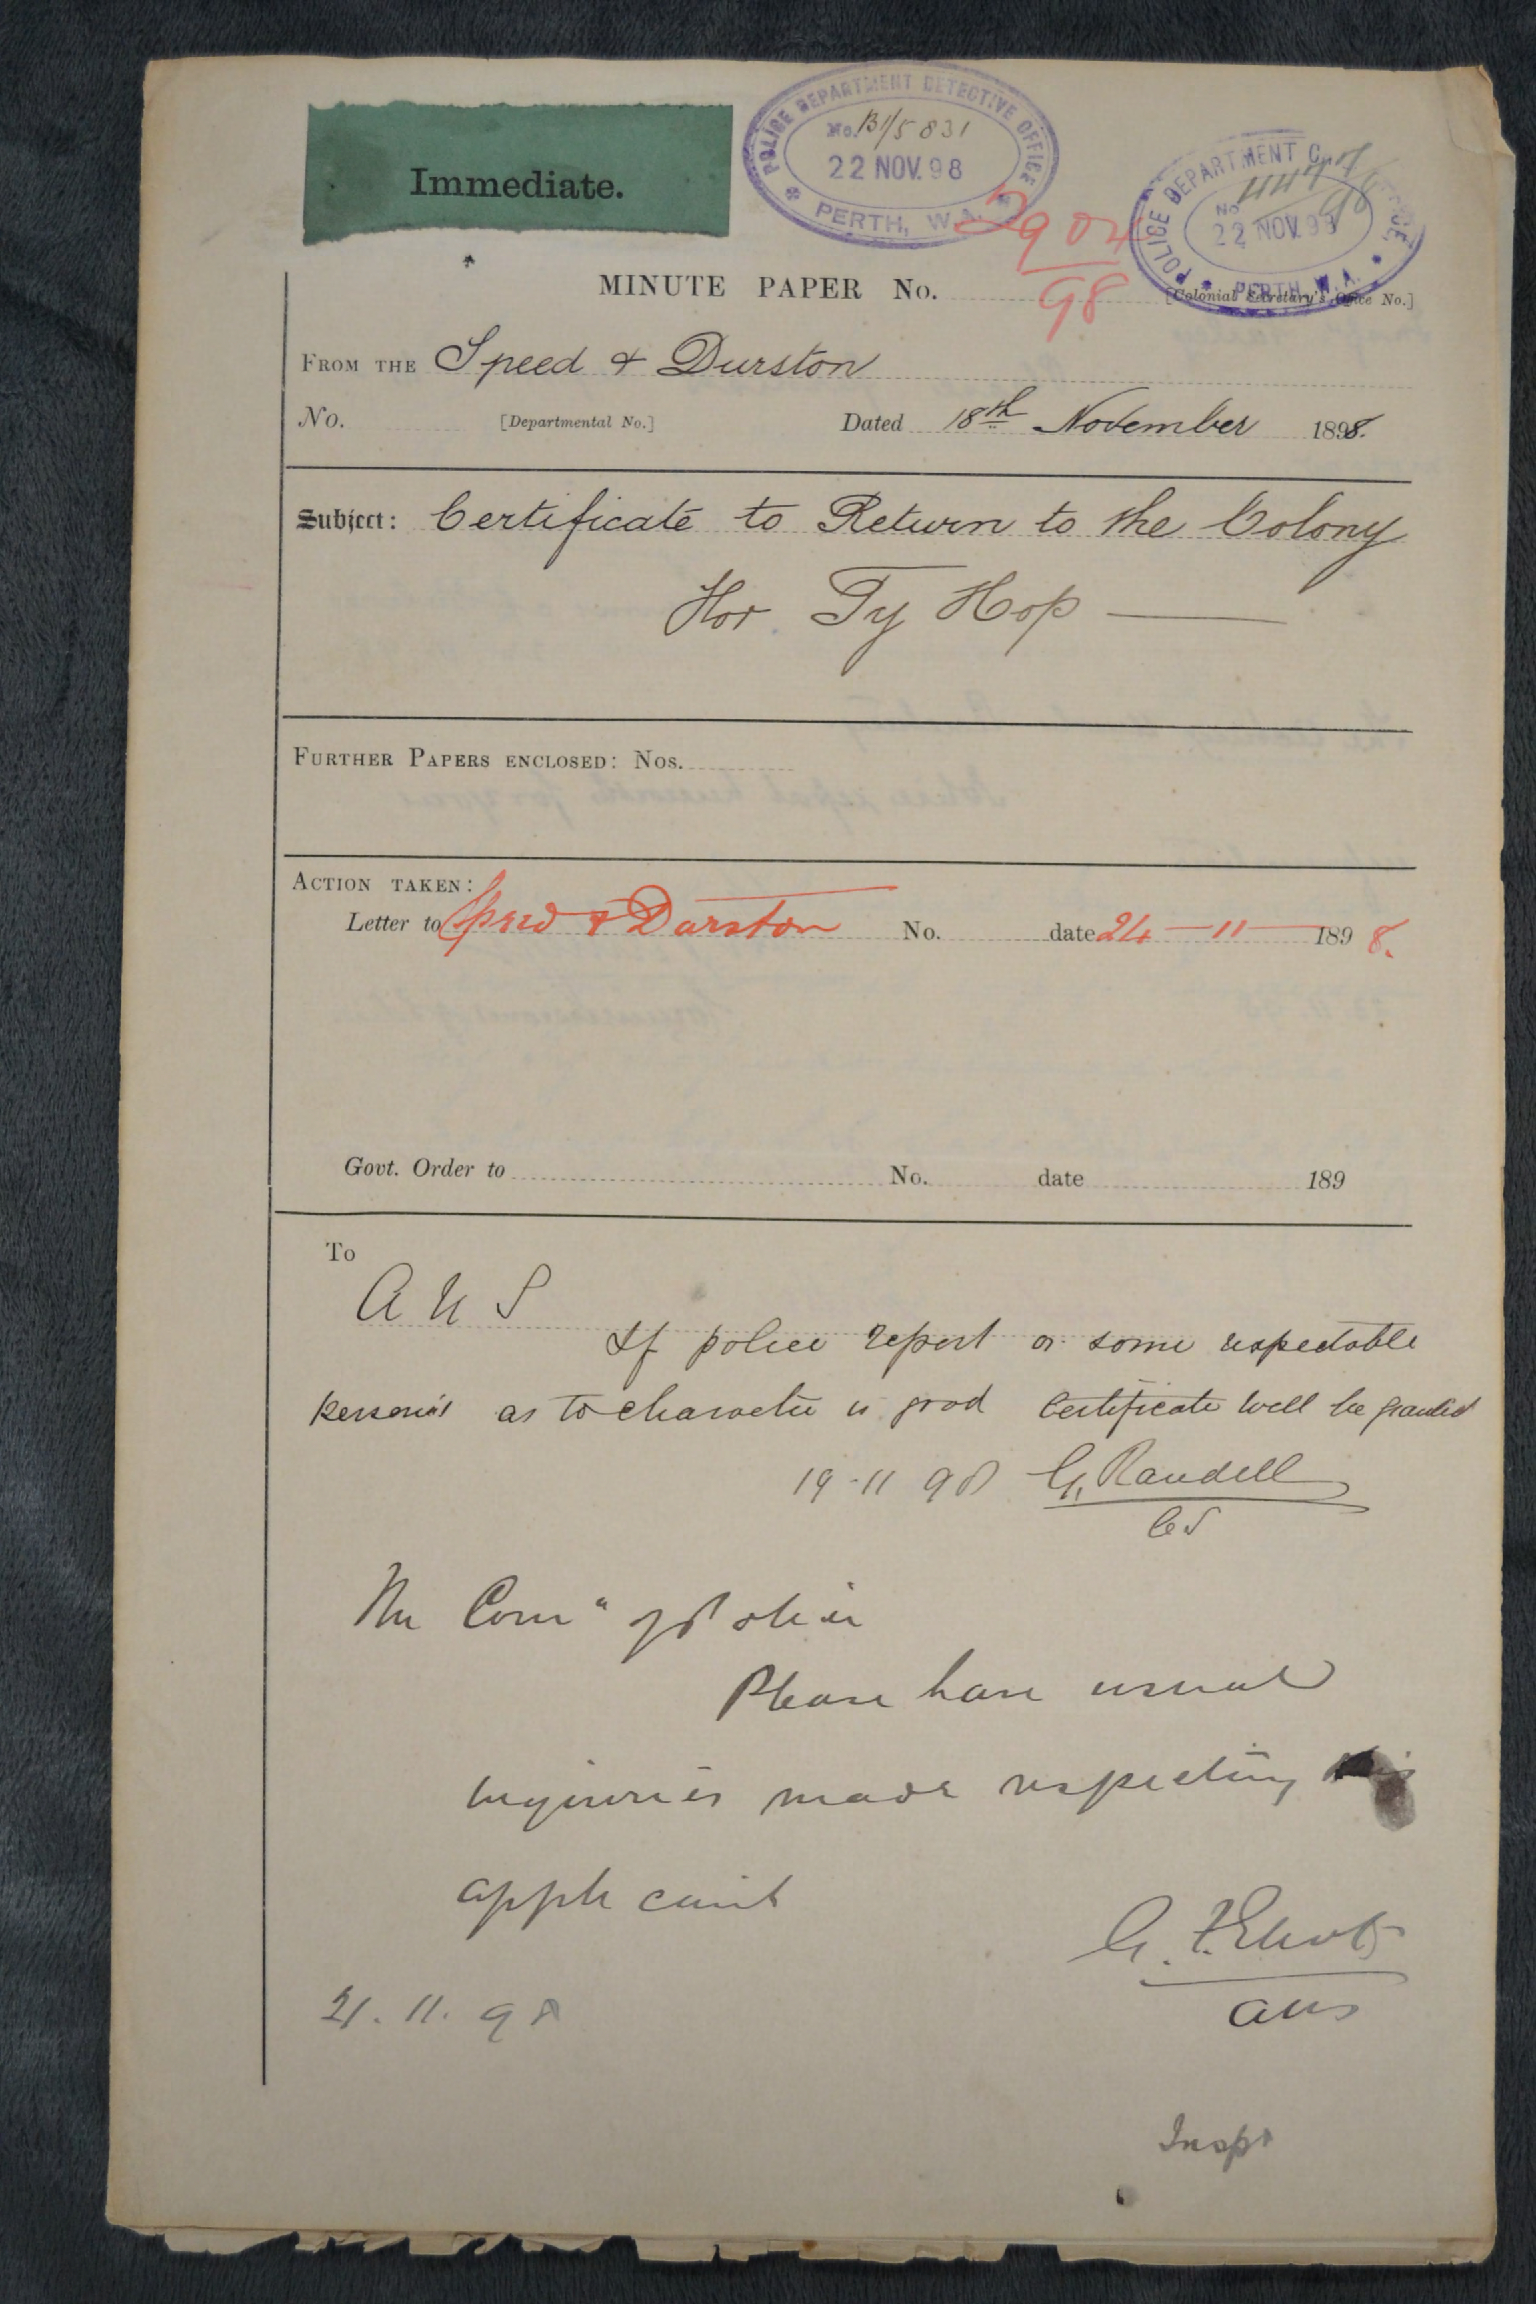 Immediate.
POLICE DEPARTMENT DETECTIVE OFFICE
No. B1/5831
22 NOV. 98
PERTH, W.A.
POLICE DEPARTMENT
No
22 NOV. 98
PERTH, W.A.
MINUTE PAPER No. 2904/98
[Colonial Secretary's Office No.]
FROM THE Speed & Durston
No. [Departmental No.] Dated 18th November 1898.
Subject: Certificate to Return to the Colony
Hor Ty Hop
FURTHER PAPERS ENCLOSED: Nos.
ACTION TAKEN:
Letter to Speed & Durston No. date 24-11-1898.
Govt. Order to No. date 189
To
A U S
If police report or some respectable
person's as to character is good Certificate will be granted
19-11 98 G. Randell
CS
The Comr of Police
Please have usual
inquiries made respecting this
applicant
G. F. Eliot
AUS
21.11.98
Inspr